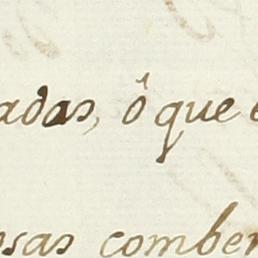 adas, ô que e
osas comber